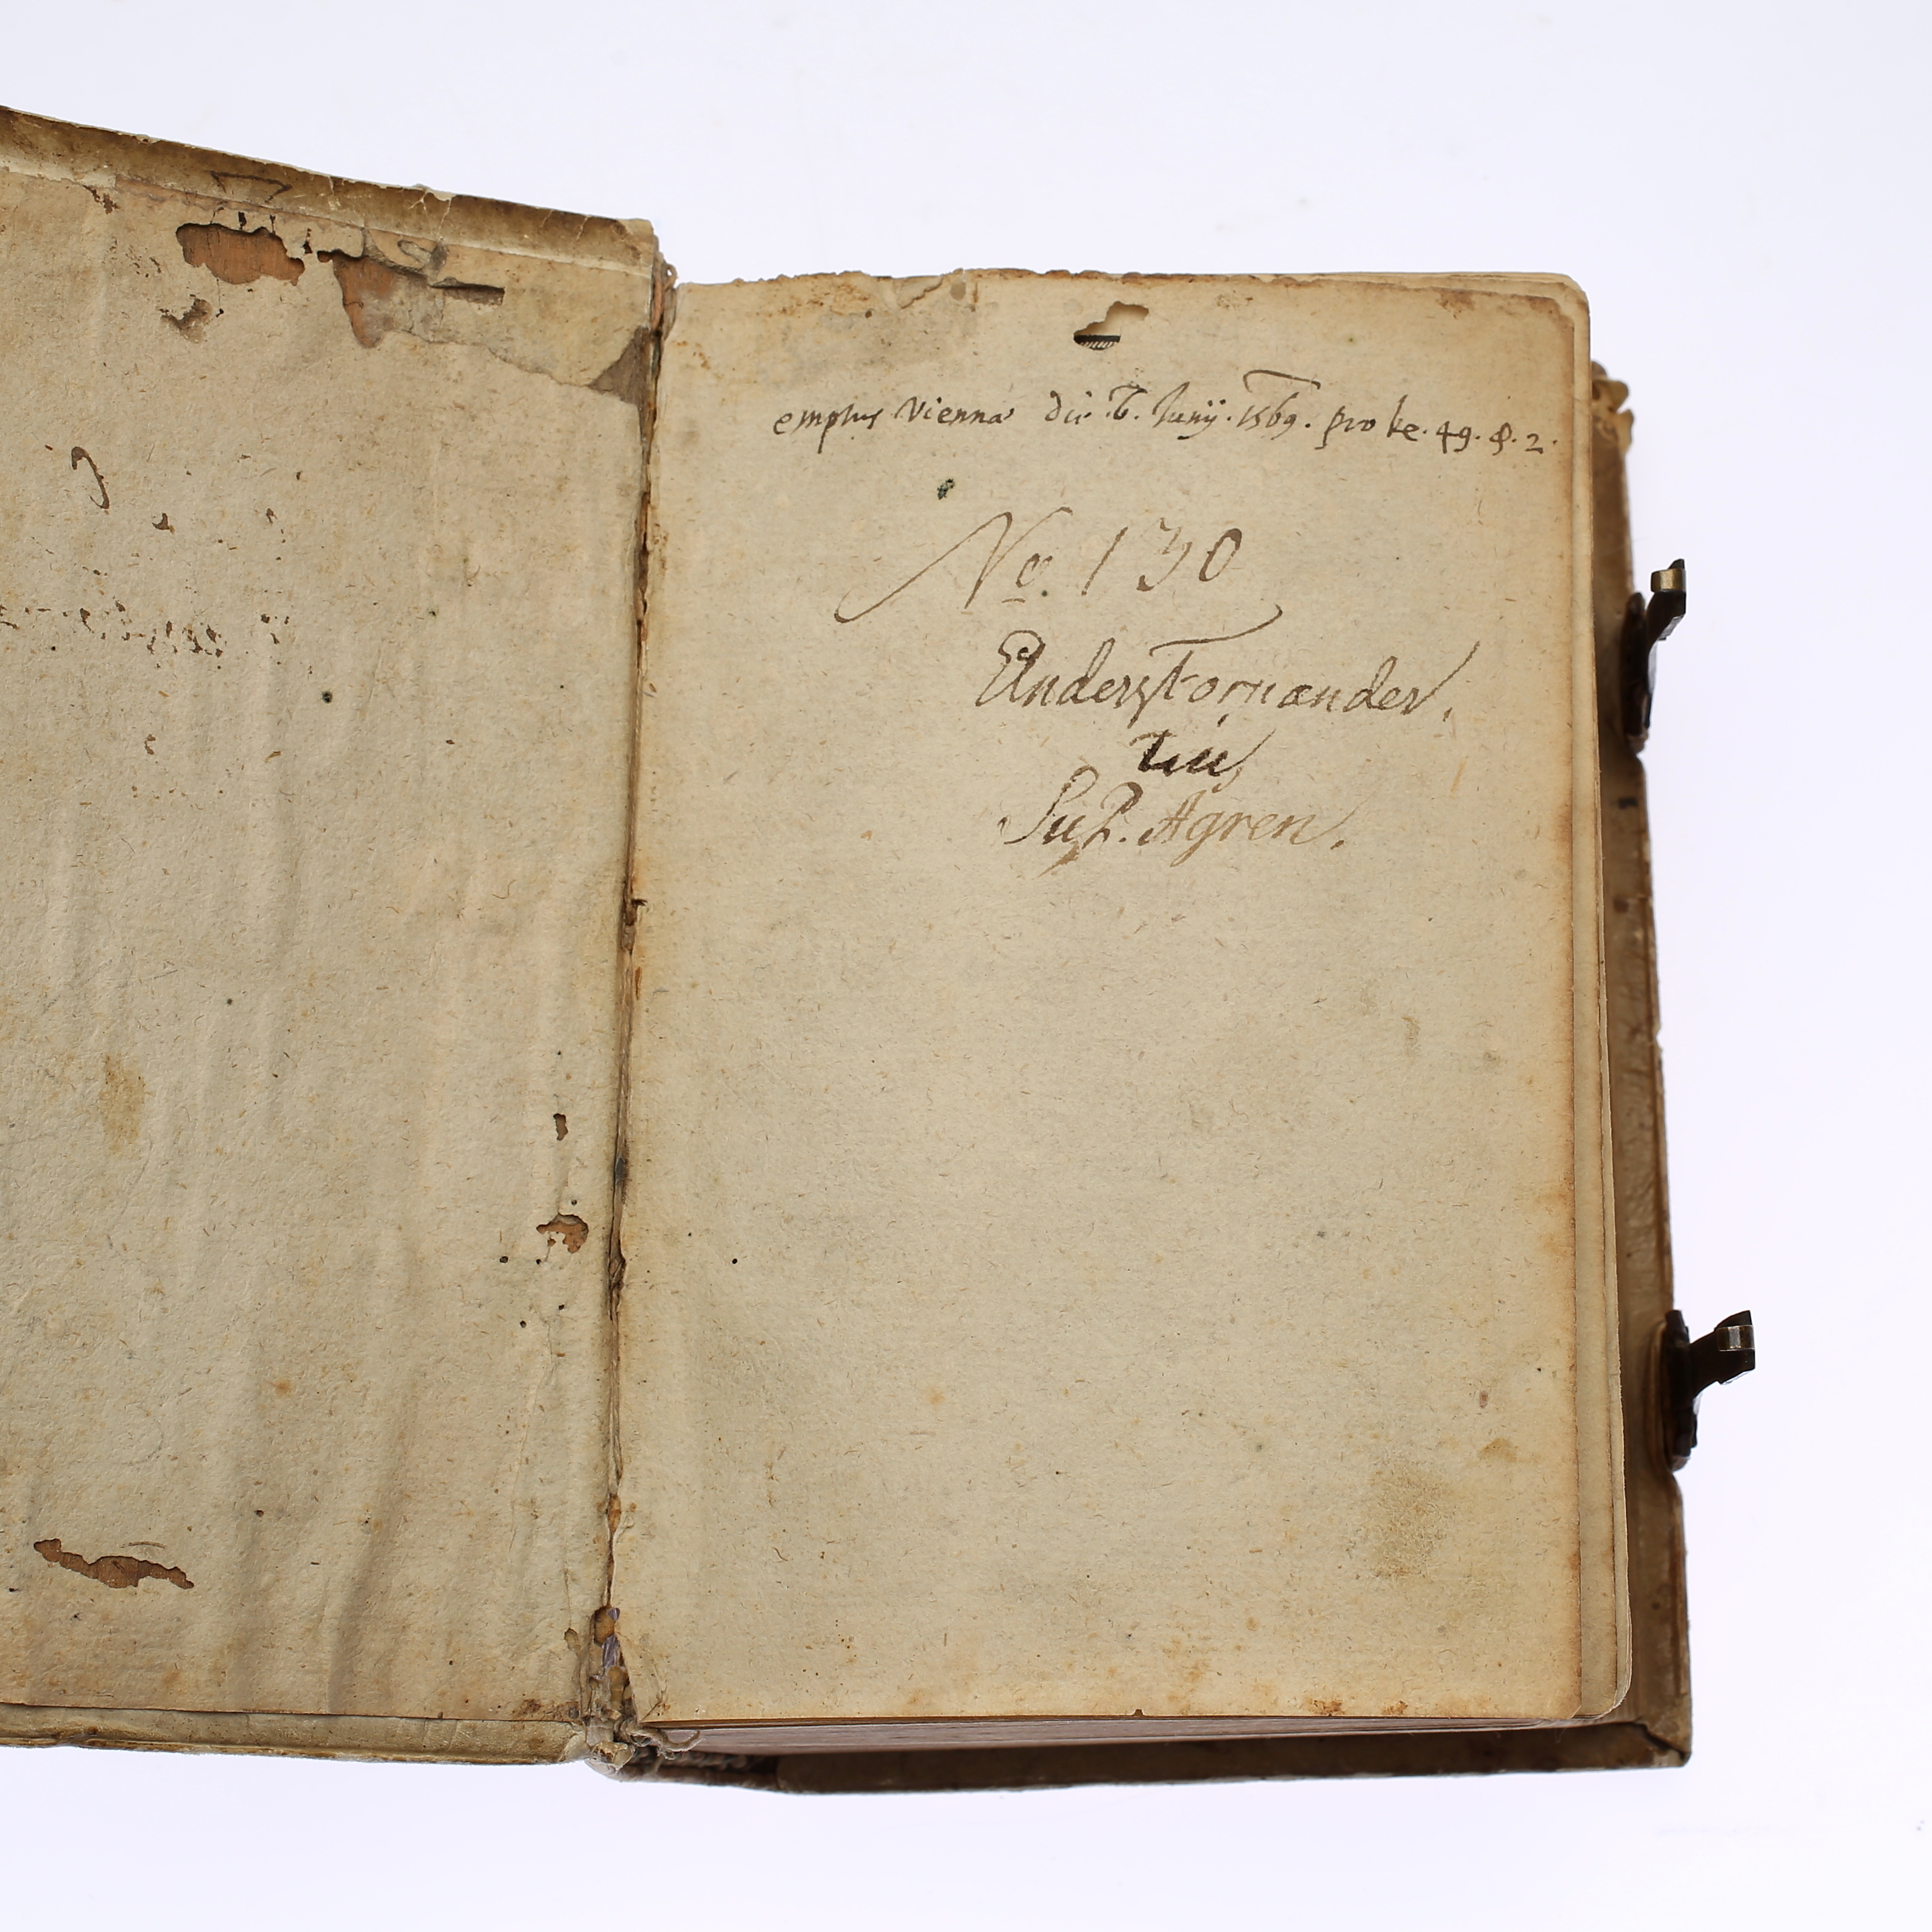 emptus Viennæ die .6. Junÿ. 1569. pro ke. 49. ₰. 2.
No. 130
Anders Fornander.
til
Sup. Agren.